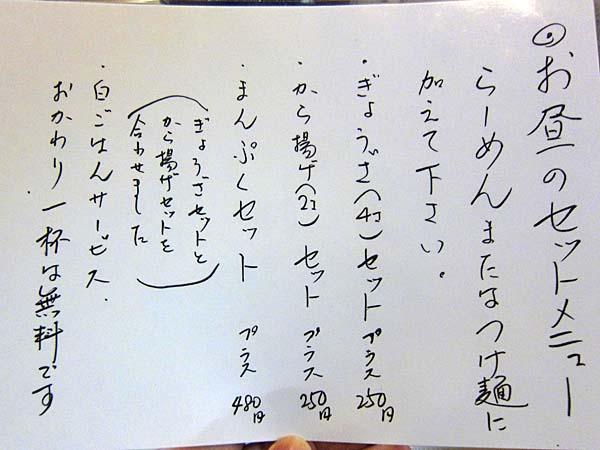 ◎お昼のセットメニュー
らーめんまたはつけ麺に
加えて下さい。
・ぎょうざ(4コ)セット プラス250円
・から揚げ(2コ)セット プラス250円
・まんぷくセット プラス480円
(ぎょうざセットと
から揚げセットを
合わせました)
・白ごはんサービス.
おかわり一杯は無料です